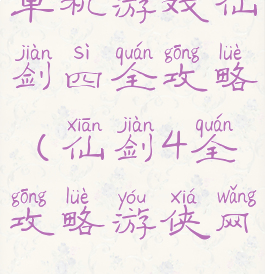 单机游戏仙
jiàn sì quán gōng lüè
剑四全攻略
xiān jiàn quán
(仙剑4全
gōng lüè yóu xiá wǎng
攻略游侠网